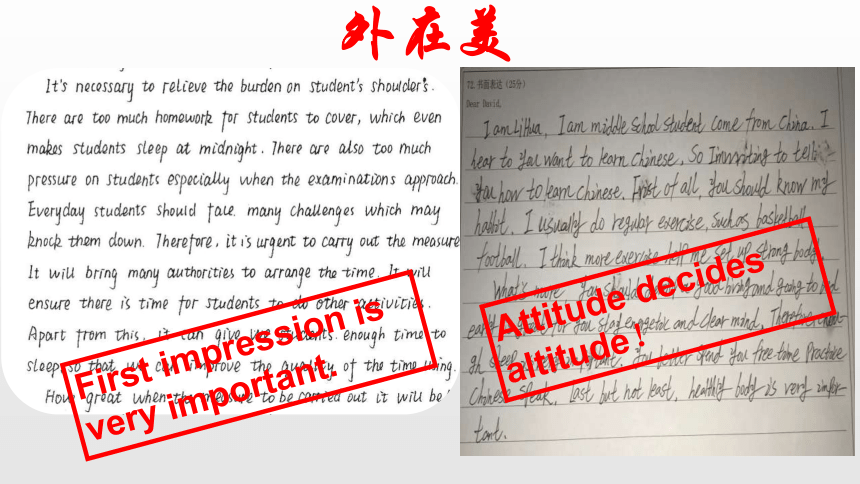 外在美
It's necessary to relieve the burden on student's shoulders.
There are too much homework for students to cover, which even
makes students sleep at midnight. There are also too much
pressure on students especially when the examinations approach.
Everyday students should face many challenges which may
knock them down. Therefore, it is urgent to carry out the measure
It will bring many authorities to arrange the time. It will
ensure there is time for students to do other activities.
Apart from this, it can give students enough time to
sleep so that we can improve the quantity of the time using.
How great when the measure to be carried out it will be!
First impression is
very important.
72 书面表达(25分)
Dear David,
I am LiHua, I am middle school student come from China. I
hear to you want to learn Chinese, So I'm writing to tell
you how to learn Chinese. First of all you should know my
habbit, I usually do regular exercise, such as basketball
football. I think more exercise help me set up strong body.
What's more you should good and going to bed
early for you stay energetic and clear mind, Therefore,
gh sleep is important. You better spend you free time practice
Chinese speak, last but not least, healthly body is very impor-
tant.
Attitude decides
altitude!